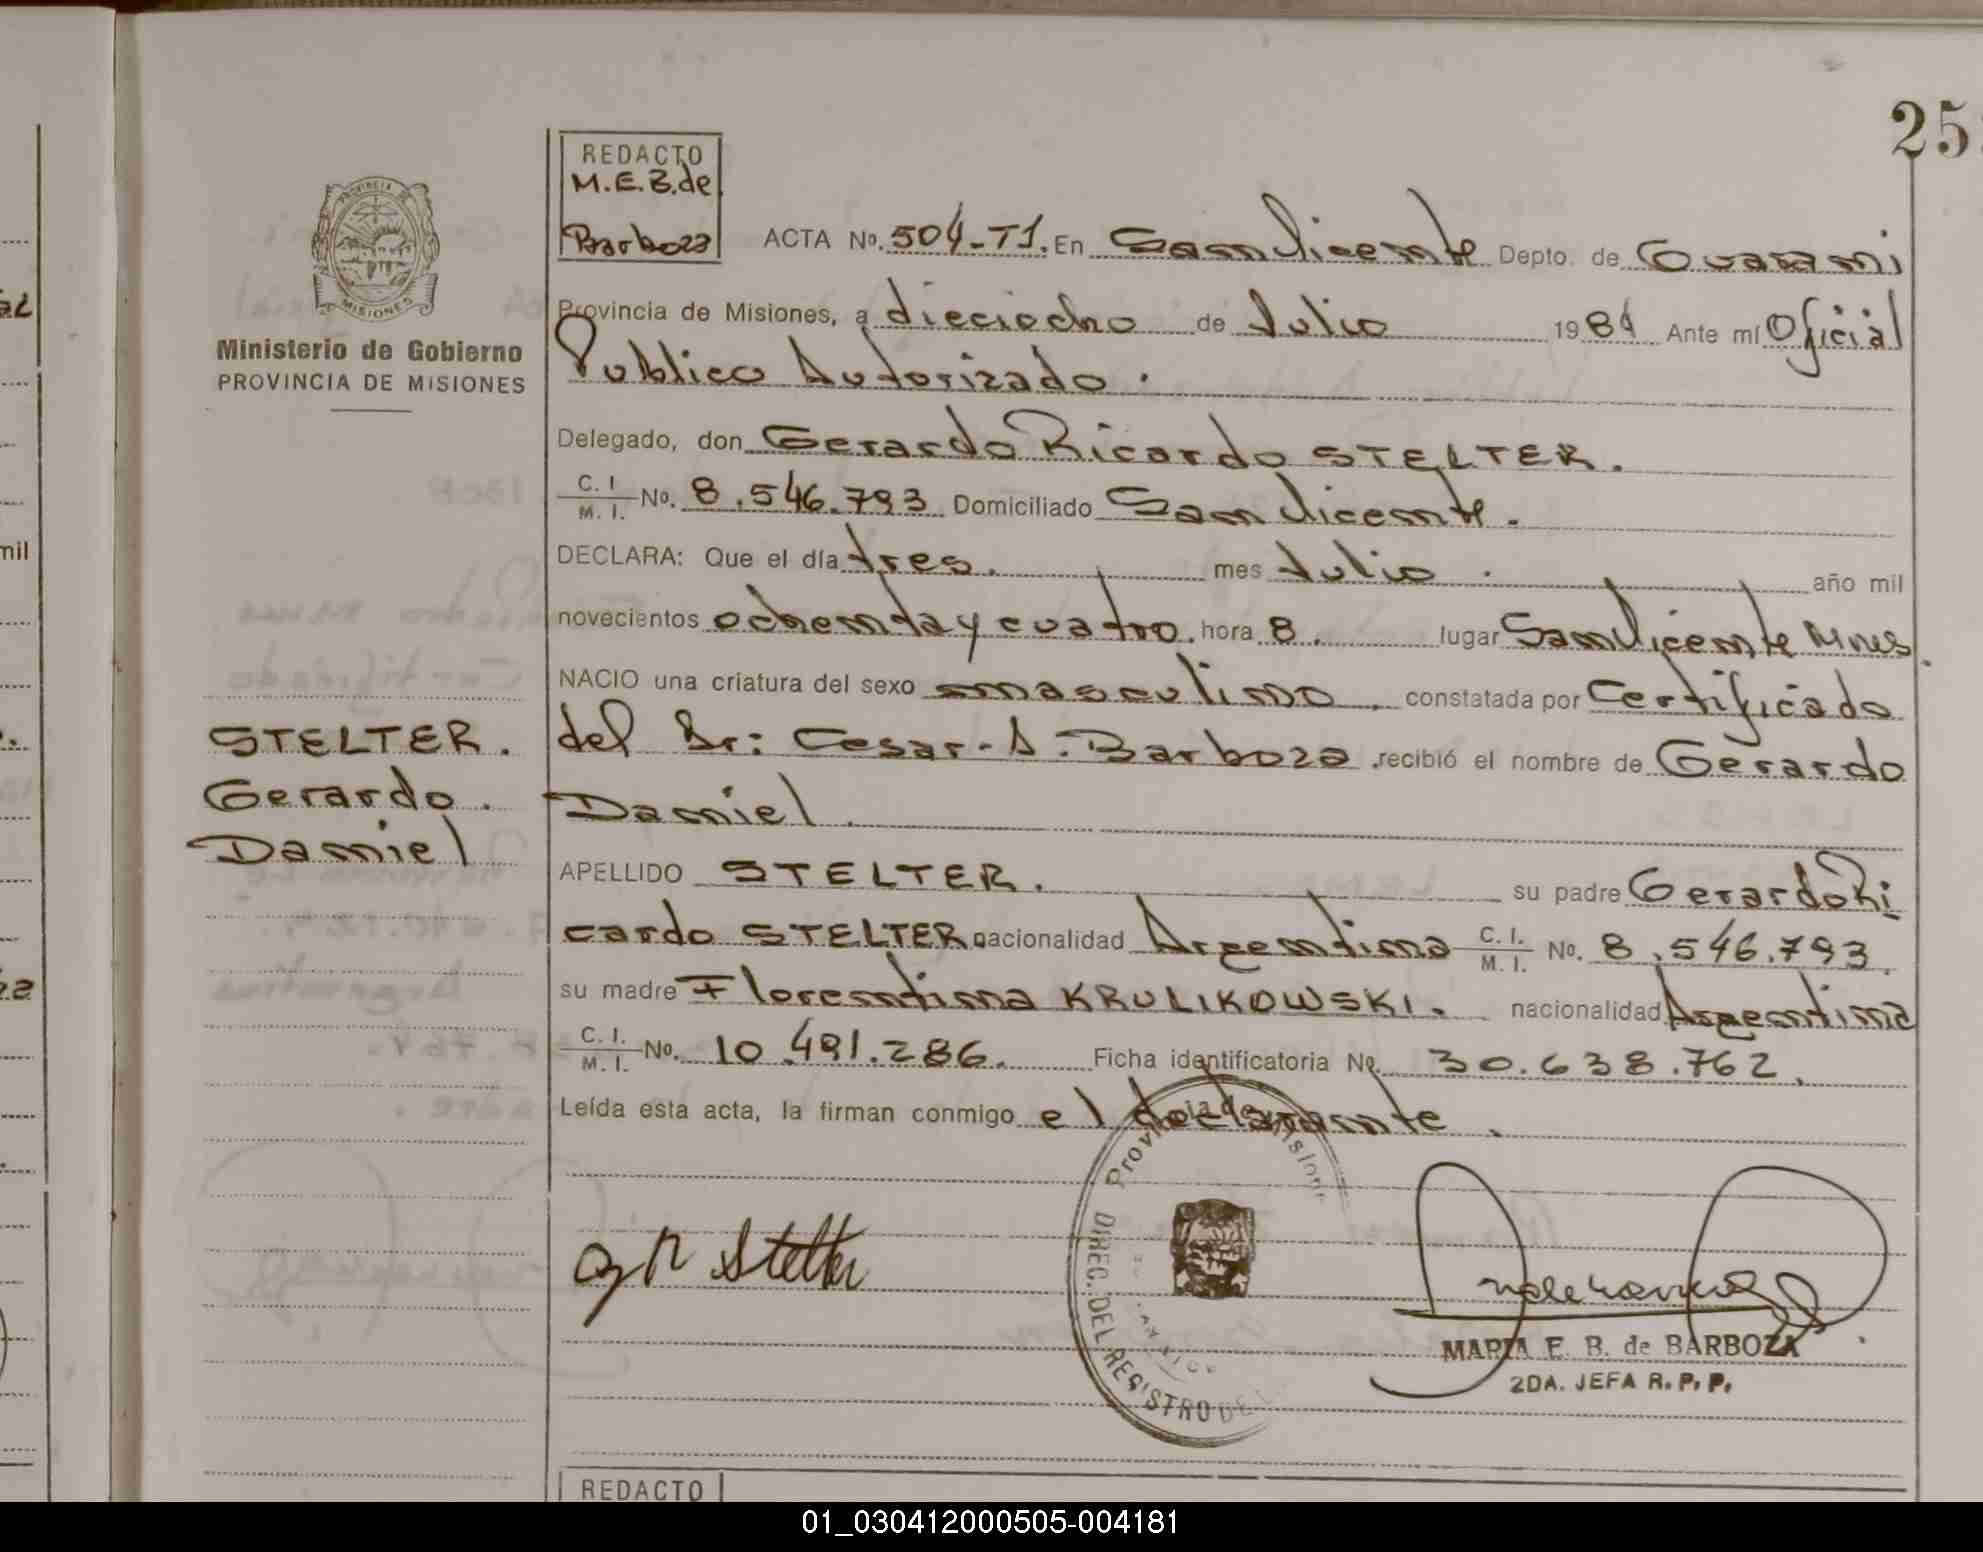 25
REDACTO
M.E.B. de
Barboza
PROVINCIA DE
MISIONES
Ministerio de Gobierno
PROVINCIA DE MISIONES
ACTA No. 504-T1. En San Vicente Depto. de Guarani
Provincia de Misiones, a dieciocho de Julio 1984 Ante mí Oficial
Publico Autorizado.
Delegado, don Gerardo Ricardo STELTER.
C. I. M. I. No. 8.546.793 Domiciliado San Vicente.
DECLARA: Que el día tres. mes Julio. año mil
novecientos ochenta y cuatro. hora 8. lugar San Vicente Mnes.
NACIO una criatura del sexo masculino, constatada por Certificado
del Dr: Cesar-A. Barboza recibió el nombre de Gerardo
Daniel.
STELTER.
Gerardo.
Daniel
APELLIDO STELTER. su padre Gerardo Ri
cardo STELTER nacionalidad Argentina C. I. M. I. No. 8.546.793.
su madre Florentina KRULIKOWSKI. nacionalidad Argentina
C. I. M. I. No. 10.491.286. Ficha identificatoria No. 30.638.762.
Leída esta acta, la firman conmigo el declarante.
G R Stelter
Provincia de Misiones
DIREC. DEL REGISTRO DE L
MARIA E. B. de BARBOZA
2DA. JEFA R. P. P.
REDACTO
mil
01_030412000505-004181